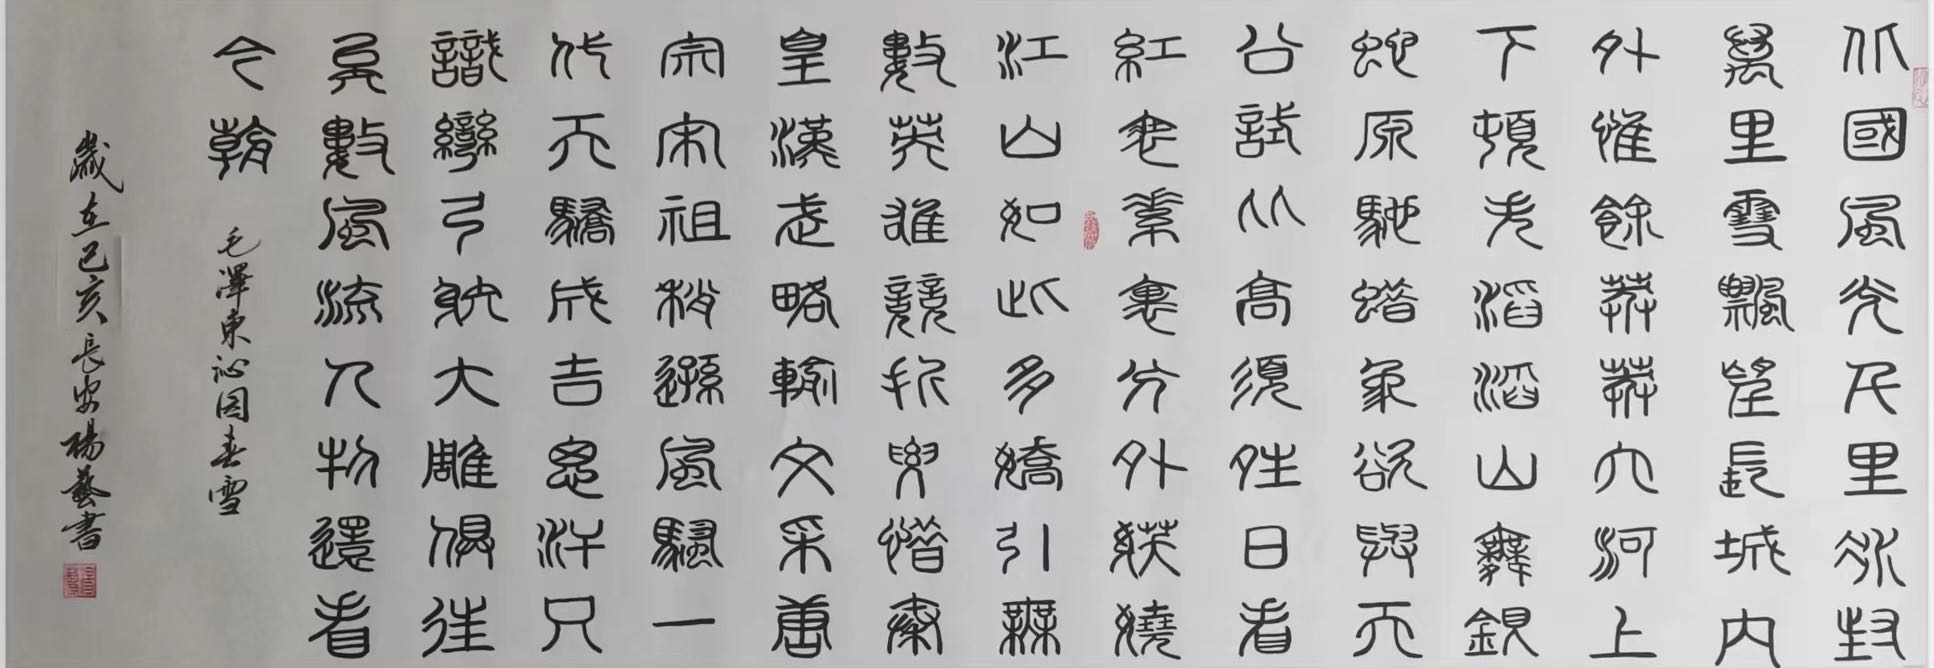 北國風光千里冰封
萬里雪飄望長城內
外惟餘莽莽大河上
下頓失滔滔山舞銀
蛇原馳蠟象欲與天
公試比高須晴日看
紅裝素裹分外妖嬈
江山如此多嬌引無
數英雄競折腰惜秦
皇漢武略輸文采唐
宗宋祖稍遜風騷一
代天驕成吉思汗只
識彎弓射大雕俱往
矣數風流人物還看
今朝
毛澤東沁園春雪
歲在己亥長安楊藝書